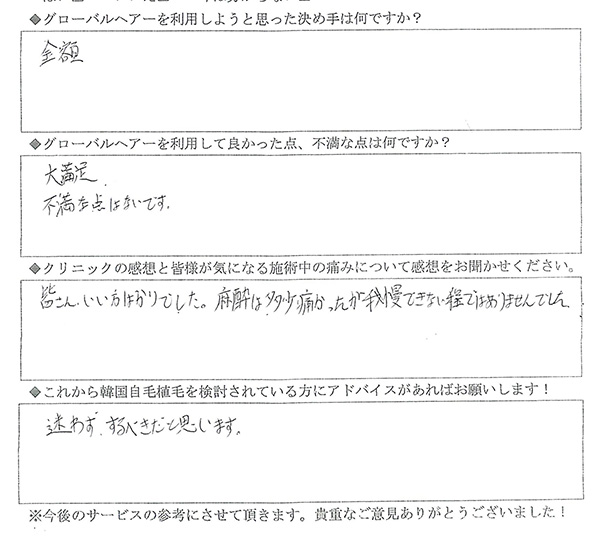 ◆グローバルヘアーを利用しようと思った決め手は何ですか？
金額
◆グローバルヘアーを利用して良かった点、不満な点は何ですか？
大満足、
不満な点はないです。
◆クリニックの感想と皆様が気になる施術中の痛みについて感想をお聞かせください。
皆さん、いい方ばかりでした。麻酔は多少痛かったが我慢できない程ではありませんでした
◆これから韓国自毛植毛を検討されている方にアドバイスがあればお願いします！
迷わず、するべきだと思います。
※今後のサービスの参考にさせて頂きます。貴重なご意見ありがとうございました！